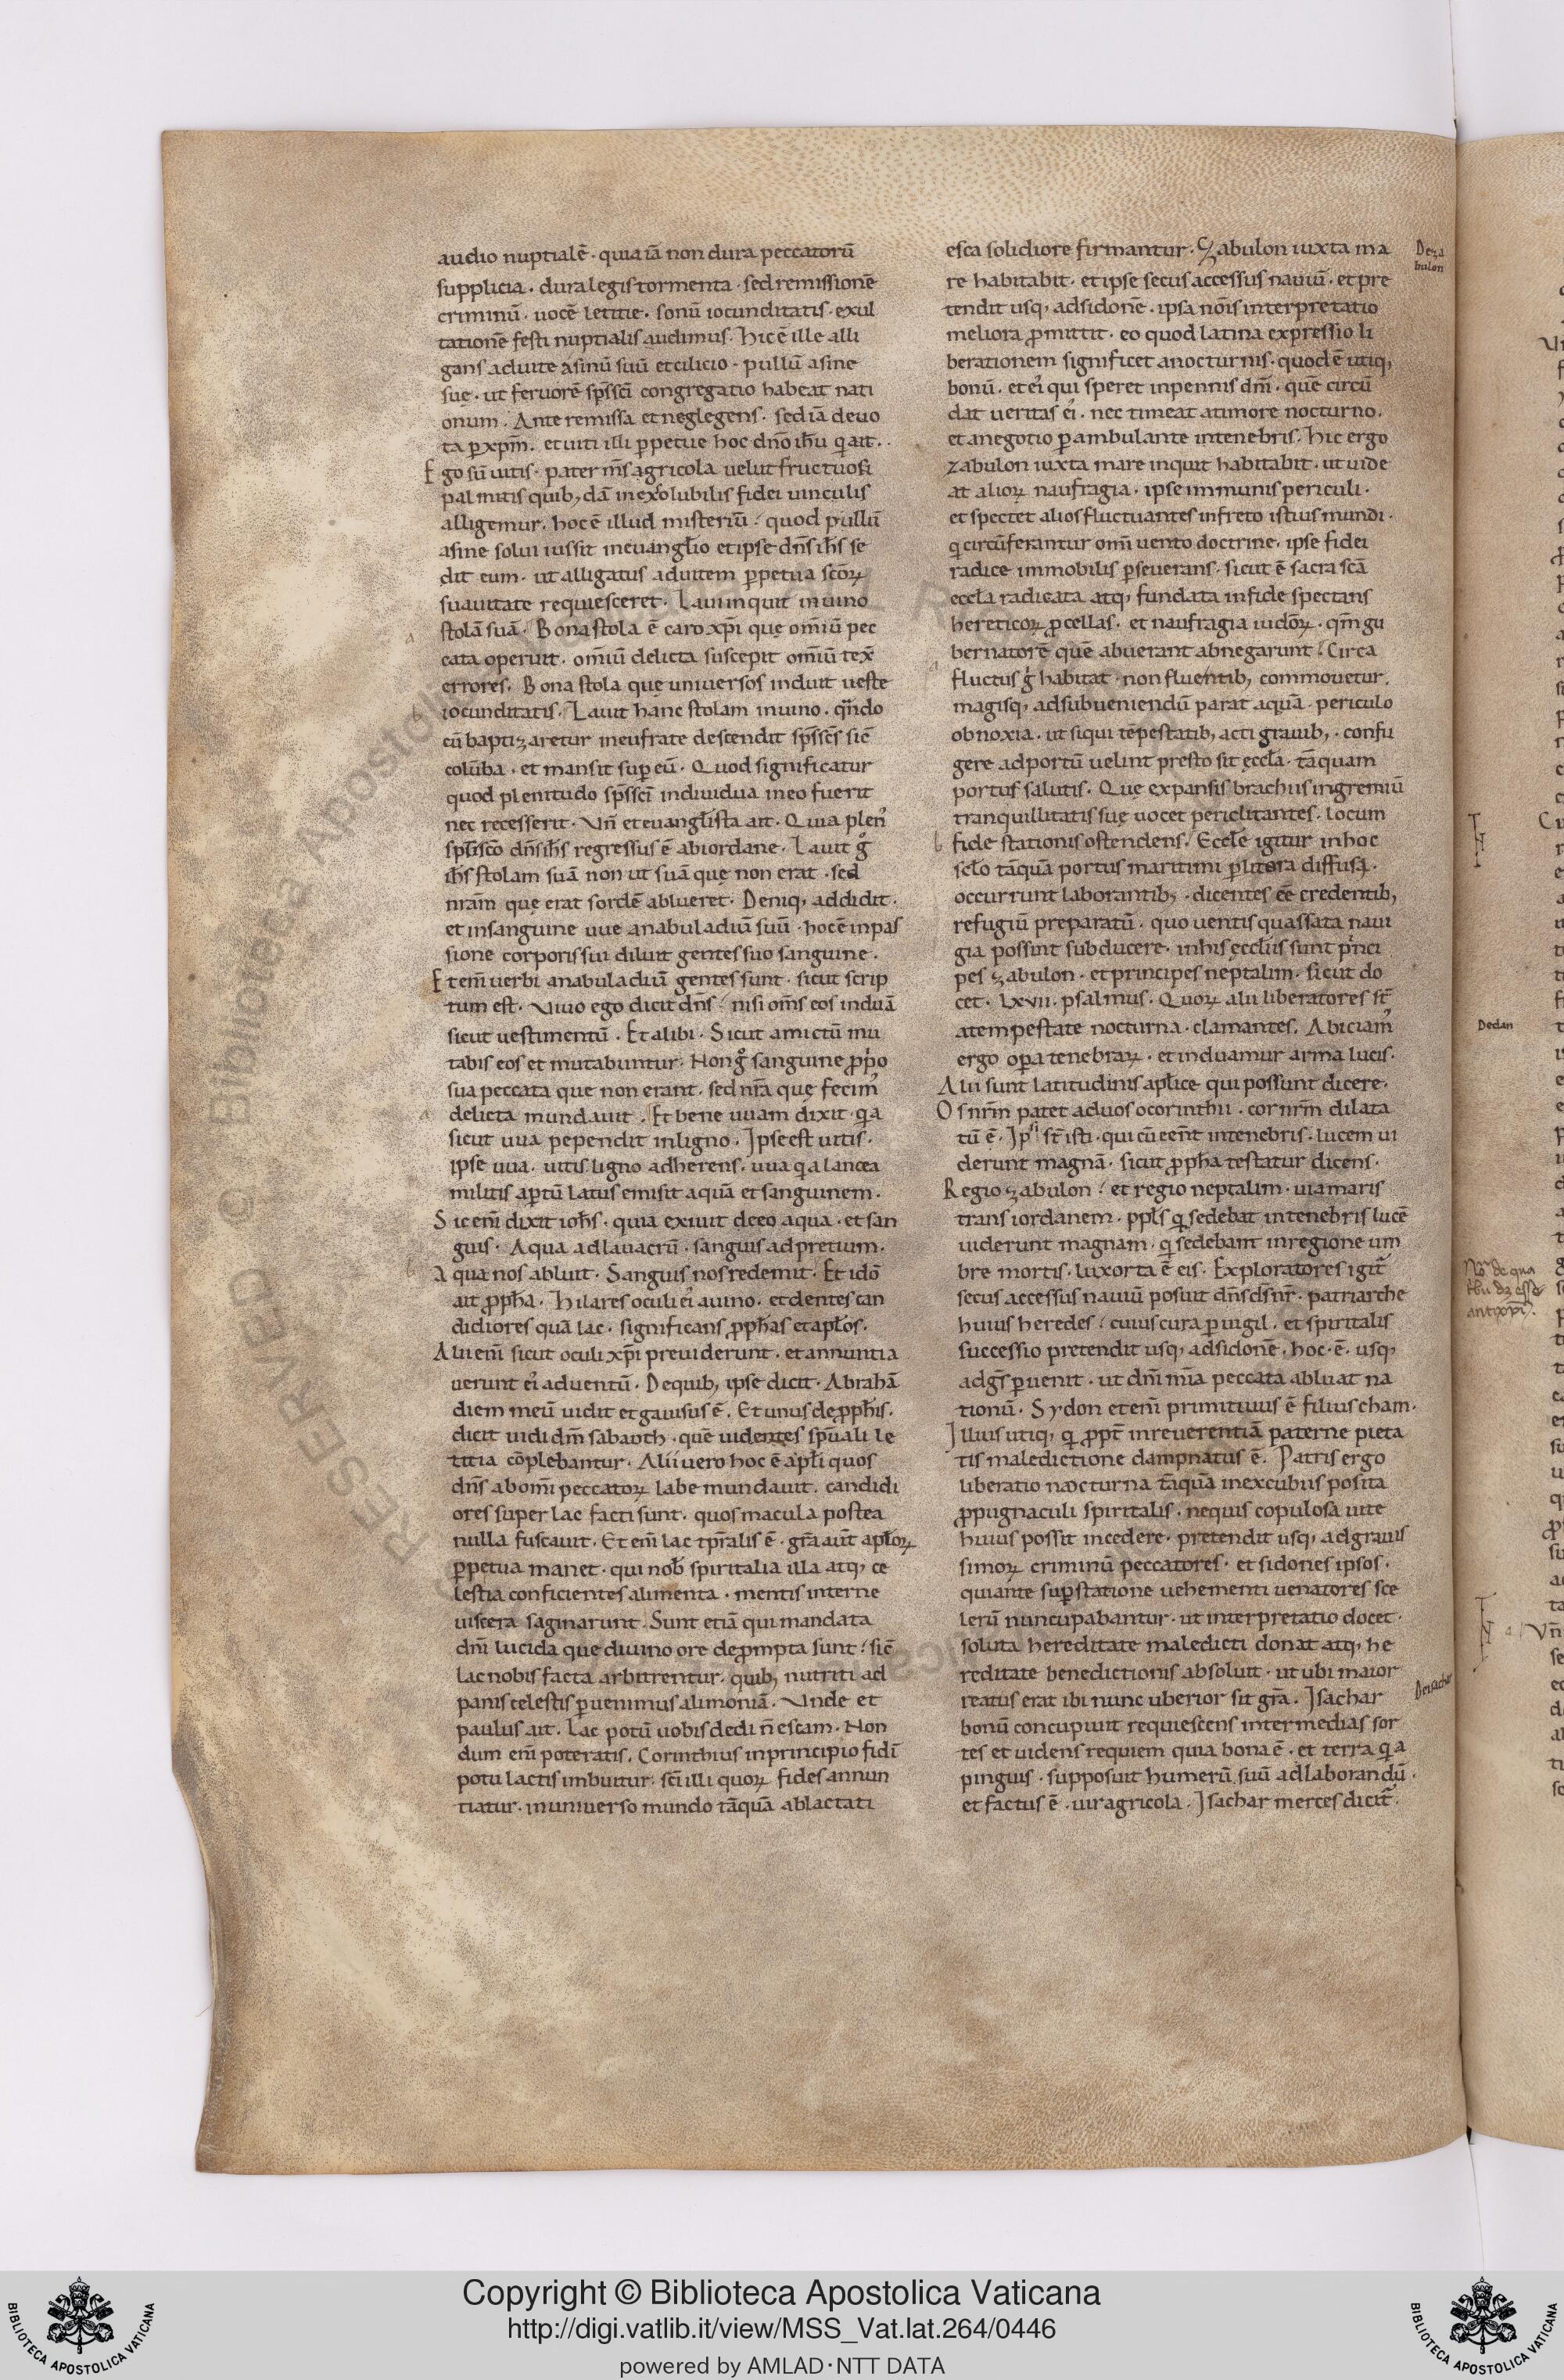 audio nuptialē · quia iā non dura peccatorū
supplicia · dura legis tormenta · sed remissionē
criminū · uocē letitie · sonū iocunditatis · exul
tationē festi nuptialis audimus · hic ē ille alli
gans ad uite asinū suū et cilicio · pullū asine
sue · ut feruorē sp̄s sc̄i congregatio habeat nati
onum · Ante remissa et neglegens · sed iā deuo
ta ꝑ xp̄m̄ · et uiti illi ꝑpetue hoc dn̄o ih̄u q̇ ait ·
Ego sū uitis · pater m̄s agricola uelut fructuosi
palmitis quib; dā inexolubilis fidei uinculis
alligemur · hoc ē illud misteriū · quod pullū
asine solui iussit in euangl̄io et ipse dn̄s ih̄s se
dit eum · ut alligatus ad uitem ꝑpetua sc̄oꝝ
suauitate requiesceret · Lauit inquit in uino
stolā suā · Bona stola ē caro xp̄i quę om̄iū pec
cata operuit · om̄iū delicta suscepit om̄iū tex̄
errores · Bona stola quę uniuersos induit ueste
iocunditatis · Lauit hanc stolam in uino · qn̄do
cū baptizaretur in eufrate descendit sp̄s sc̄s sic̄
colūba · et mansit suꝑ eū · Quod significatur
quod plenitudo sp̄s sc̄i indiuidua in eo fuerit
nec recesserit · Vn̄ et euangl̄ista ait · Quia plen᷒
sp̄u sc̄o dn̄s ih̄s regressus ē ab iordane · Lauit g̊
ih̄s stolam suā non ut suā quę non erat · sed
nr̄am quę erat sordē ablueret · Deniq; addidit ·
et in sanguine uue anaboladiū suū · hoc ē in pas
sione corporis sui diluit gentes suo sanguine ·
Et eni᷒ uerbi anaboladiū gentes sunt · sicut scrip
tum est · Viuo ego dicit dn̄s · nisi om̄s eos induā
sicut uestimentū · Et alibi · Sicut amictū mu
tabis eos et mutabuntur · Non g̊ sanguine ꝓp̓o
sua peccata que non erant · sed nr̄a quę fecim᷒
delicta mundauit · Et bene uuam dixit · q̇a
sicut uua pependit in ligno · Ipse est uitis ·
ipse uua · uitis ligno adherens · uua q̇a lancea
militis aꝑtū latus emisit aquā et sanguinem ·
Sic eni᷒ dixit ioh̄s · quia exiuit de eo aqua · et san
guis · Aqua ad lauacrū · sanguis ad pretium ·
Aqua nos abluit · Sanguis nos redemit · Et idō
ait ꝓph̄a · Hilares oculi ei᷒ a uino · et dentes can
didiores quā lac · significans ꝓph̄as et apl̄os ·
Alii eni᷒ sicut oculi xp̄i preuiderunt · et annuntia
uerunt ei᷒ aduentū · De quib; ipse dicit · Abrahā
diem meū uidit et gauisus ē · Et unus de ꝓph̄is ·
dicit uidi dn̄m sabaoth · quē uidentes sp̄uali le
titia cōplebantur · Alii uero hoc ē apl̄i quos
dn̄s ab om̄i peccatoꝝ labe mundauit · candidi
ores super lac facti sunt · quos macula postea
nulla fuscauit · Et eni᷒ lac tp̄ralis ē · gr̄a aūt apl̄oꝝ
ꝑpetua manet · qui nob̄ spiritalia illa atq; ce
lestia conficientes alimenta · mentis interne
uiscera saginarunt · Sunt etiā qui mandata
dn̄i lucida que diuino ore deꝓmpta sunt · sic̄
lac nobis facta arbitrentur · quib; nutriti ad
panis celestis ꝑuenimus alimoniā · Vnde et
paulus ait · Lac potū uobis dedi n̄ escam · Non
dum eni᷒ poteratis · Corinthius in principio fidī
potu lactis imbuitur · sc̄i illi quoꝝ fides annun
tiatur · in uniuerso mundo tāquā ablactati
esca solidiore firmantur · Zabulon iuxta ma
re habitabit · et ipse secus accessus nauiū · et pre
tendit usq; ad sidonē · ipsa nōis interpretatio
meliora ꝓmittit · eo quod latina expressio li
berationem significet a nocturnis · quod ē utiq;
bonū · et ei᷒ qui speret in pennis dn̄i · quē circū
dat ueritas ei᷒ · nec timeat a timore nocturno ·
et a negotio ꝑambulante in tenebris · Hic ergo
zabulon iuxta mare inquit habitabit · ut uide
at alioꝝ naufragia · ipse immunis periculi ·
et spectet alios fluctuantes in freto istius mundi ·
q̇ circūferantur om̄i uento doctrine · ipse fidei
radice immobilis ꝑseuerans · sicut ē sacra sc̄ā
eccl̄a radicata atq; fundata in fide spectans
hereticoꝝ ꝓcellas · et naufragia iudōꝝ · qm̄ gu
bernatorē quē abuerant abnegarunt · Circa
fluctus g̊ habitat · non fluentib; commouetur ·
magisq; ad subueniendū parat aquā · periculo
obnoxia · ut siqui tēpestatib; acti grauib; · confu
gere ad portū uelint presto sit ęccl̄a · tāquam
portus salutis · Quę expansis brachiis in gremiū
tranquillitatis suę uocet periclitantes · locum
fide stationis ostendens · Eccl̄e igitur in hoc
sc̄lo tāquā portus maritimi ꝑ litora diffusi ·
occurrunt laborantib; · dicentes eē credentib;
refugiū preparatū · quo uentis quassata naui
gia possint subducere · in his ęccl̄iis sunt p̓nci
pes zabulon · et principes neptalim · sicut do
cet · Lxvii · psalmus · Quoꝝ alii liberatores st̄
a tempestate nocturna · clamantes · Abiciam᷒
ergo oꝑa tenebraꝝ · et induamur arma lucis ·
Alii sunt latitudinis apl̄ice qui possunt dicere ·
Os nr̄m patet ad uos o corinthii · cor nr̄m dilata
tū ē · Ip̄i st̄ isti · qui cū eēnt in tenebris · lucem ui
derunt magnā · sicut ꝓph̄a testatur dicens ·
Regio zabulon · et regio neptalim · uia maris
trans iordanem · ppl̄s q̇ sedebat in tenebris lucē
uiderunt magnam · q̇ sedebant in regione um
bre mortis · lux orta ē eis · Exploratores igit᷒
secus accessus nauiū posuit dn̄s ds̄ nr̄ · patriarche
huius heredes · cuius cura ꝑuigil · et spiritalis
successio pretendit usq; ad sidonē · hoc · ē · usq;
ad gs̄ ꝑuenit · ut dn̄i mīa peccata abluat na
tionū · Sydon etenī primitiuus ē filius cham ·
Illius utiq; q̇ ꝓpt̄ inreuerentiā paterne pieta
tis maledictione dampnatus ē · Patris ergo
liberatio nocturna tāquā in excubiis posita
ꝓpugnaculi spiritalis · nequis copulosa uite
huius possit incedere · pretendit usq; ad grauis
simoꝝ criminū peccatores · et sidones ipsos ·
qui ante suꝑstatione uehementi uenatores sce
lerū nuncupabantur · ut interpretatio docet ·
soluta hereditate maledicti donat atq; he
reditate benedictionis absoluit · ut ubi maior
reatus erat ibi nunc uberior sit gr̄a · Isachar
bonū concupiuit requiescens inter medias sor
tes et uidens requiem quia bona ē · et terra q̇a
pinguis · supposuit humerū suū ad laborandū ·
et factus ē · uir agricola · Isachar merces dicit᷒ ·
De za
bulon
De isachar
Dedan
Nā de qua
tbu dʒ esse
antxp̄i ·
Copyright © Biblioteca Apostolica Vaticana
http://digi.vatlib.it/view/MSS_Vat.lat.264/0446
powered by AMLAD·NTT DATA
BIBLIOTECA APOSTOLICA VATICANA
BIBLIOTECA APOSTOLICA VATICANA